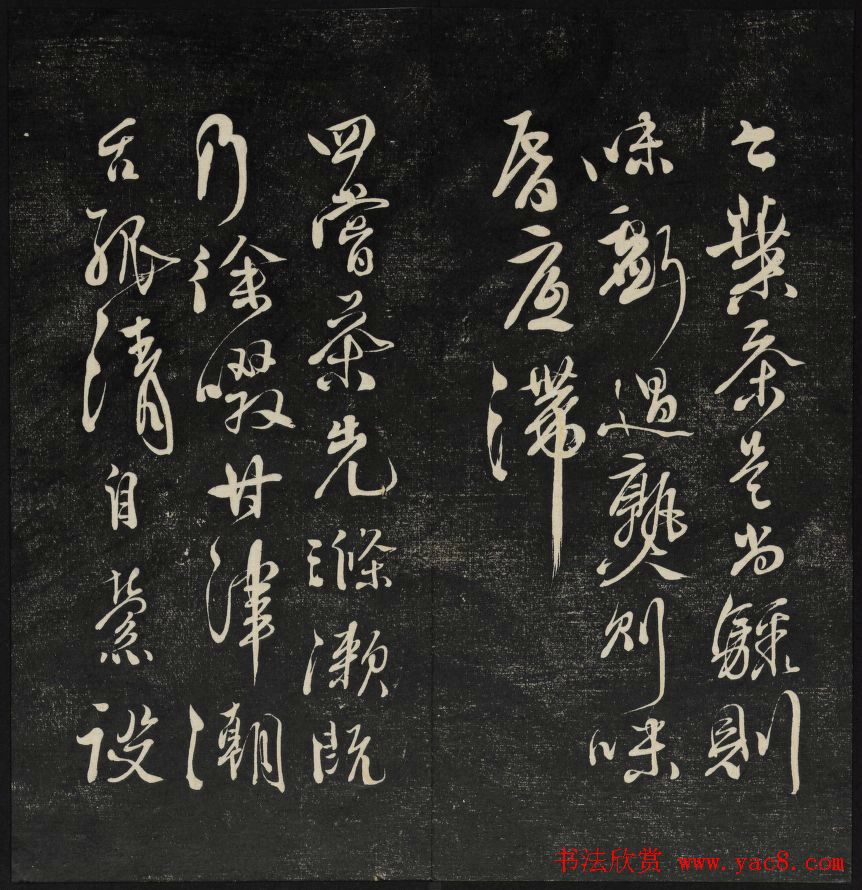 今葉茶是尚驟則
味虧過熟則味
昏底滯
四嘗茶先滌漱既
乃徐啜甘津潮
舌孤清自縈設
书法欣赏 www.yac8.com